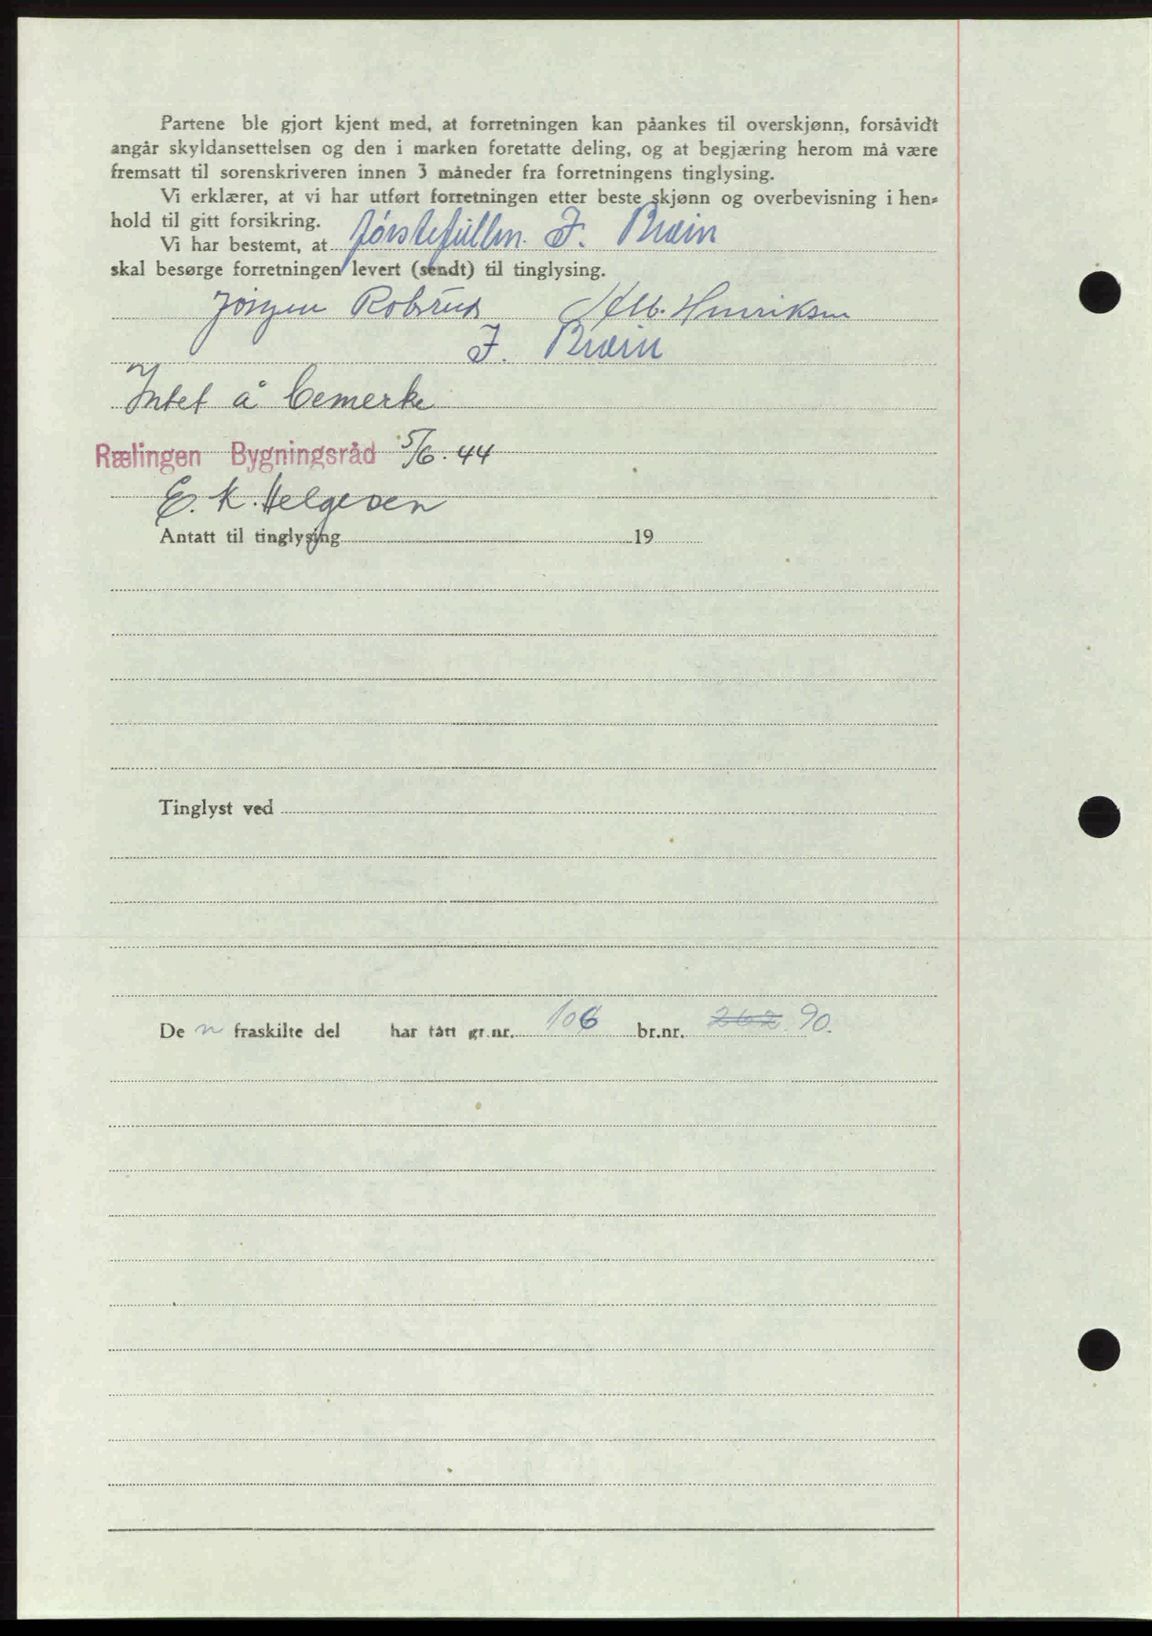 Partene ble gjort kjent med, at forretningen kan påankes til overskjønn, forsåvidt
angår skyldansettelsen og den i marken foretatte deling, og at begjæring herom må være
fremsatt til sorenskriveren innen 3 måneder fra forretningens tinglysing.
Vi erklærer, at vi har utført forretningen etter beste skjønn og overbevisning i hen-
hold til gitt forsikring.
Vi har bestemt, at J. Bræin
skal besørge forretningen levert (sendt) til tinglysing.
Jörgen Robsrud Alb. Henriksen
J. Bræin
Intet å bemerke
Rælingen Bygningsråd 5/6.44
E. K. Helgesen
Antatt til tinglysing 19
Tinglyst ved
De n fraskilte del har fått gr.nr. 106 br.nr. 262 90.